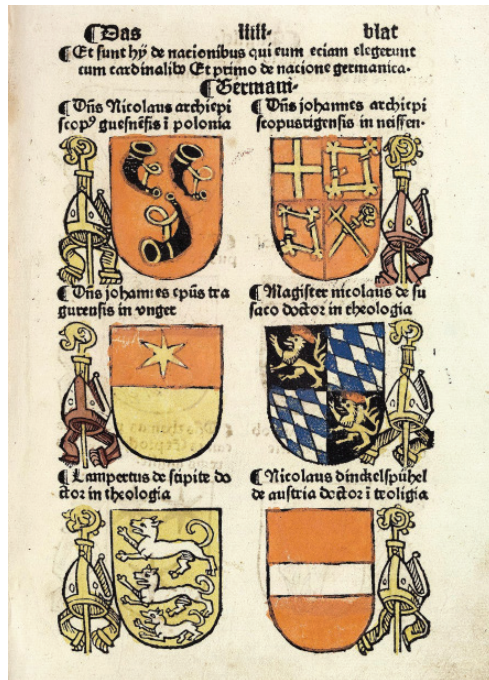 ¶ Das iiii· blat
¶ Et sunt hÿ de nacionibus qui eum eciam elegerunt
cum cardinalibꝰ Et primo de nacione germanica·
¶ Germani·
¶ Dn̄s Nicolaus archiepi
scopꝰ guesnēsis ī polonia
¶ Dn̄s johannes archiepi
scopusrigensis in neiffen·
¶ Dn̄s johannes ep̄us tra
gurensis in vnger
¶ Magister nicolaus de su
saco doctor in theologia
¶ Lampertus de stipite do
ctor in theologia
¶ Nicolaus dinckelspühel
de austria doctor ī teoligia